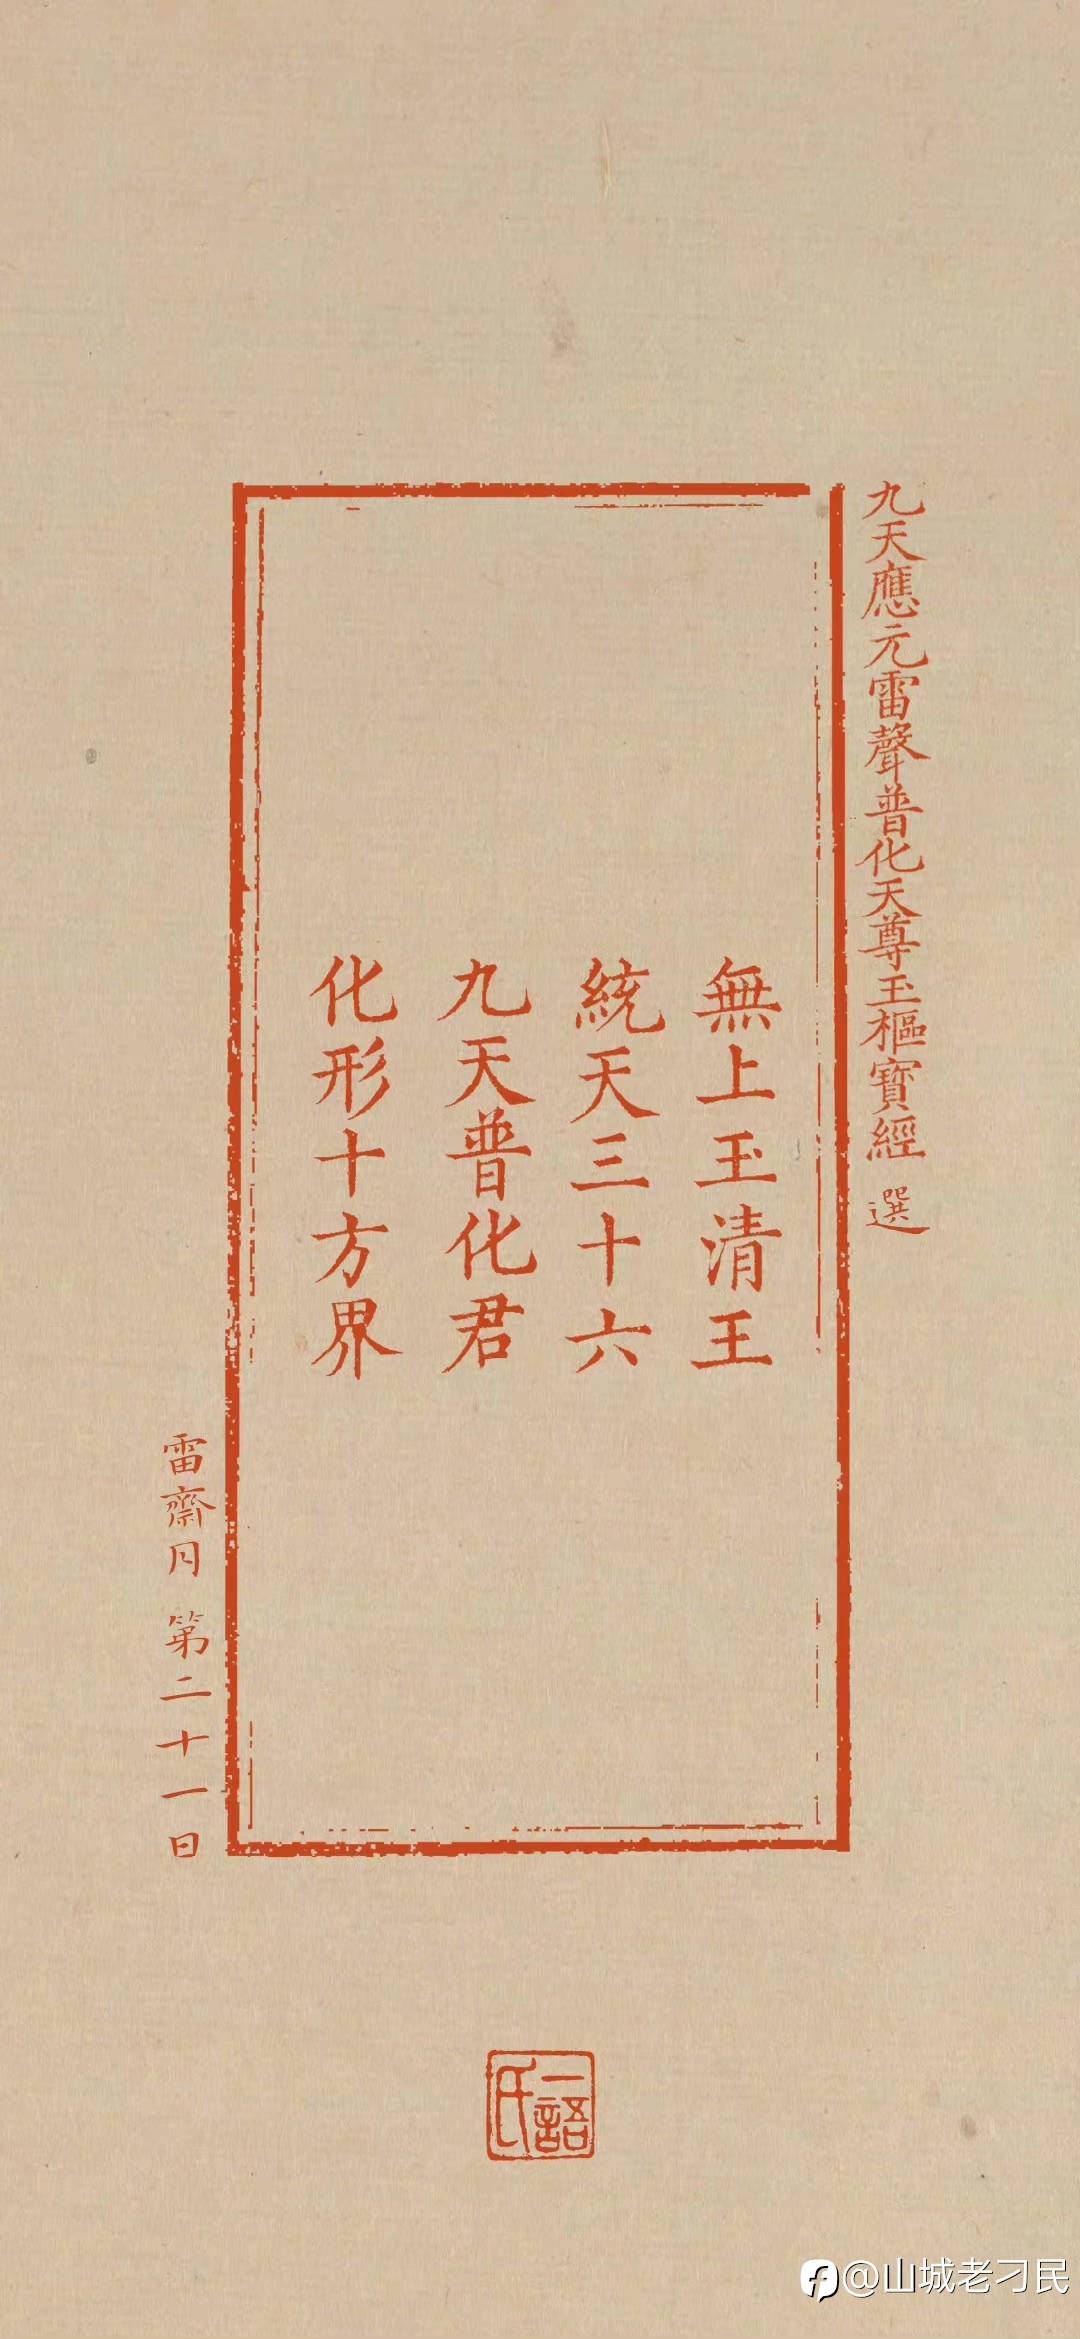 九天應元雷聲普化天尊玉樞寶經 選
無上玉清王
統天三十六
九天普化君
化形十方界
雷齋月 第二十一日
一語氏
@山城老刁民